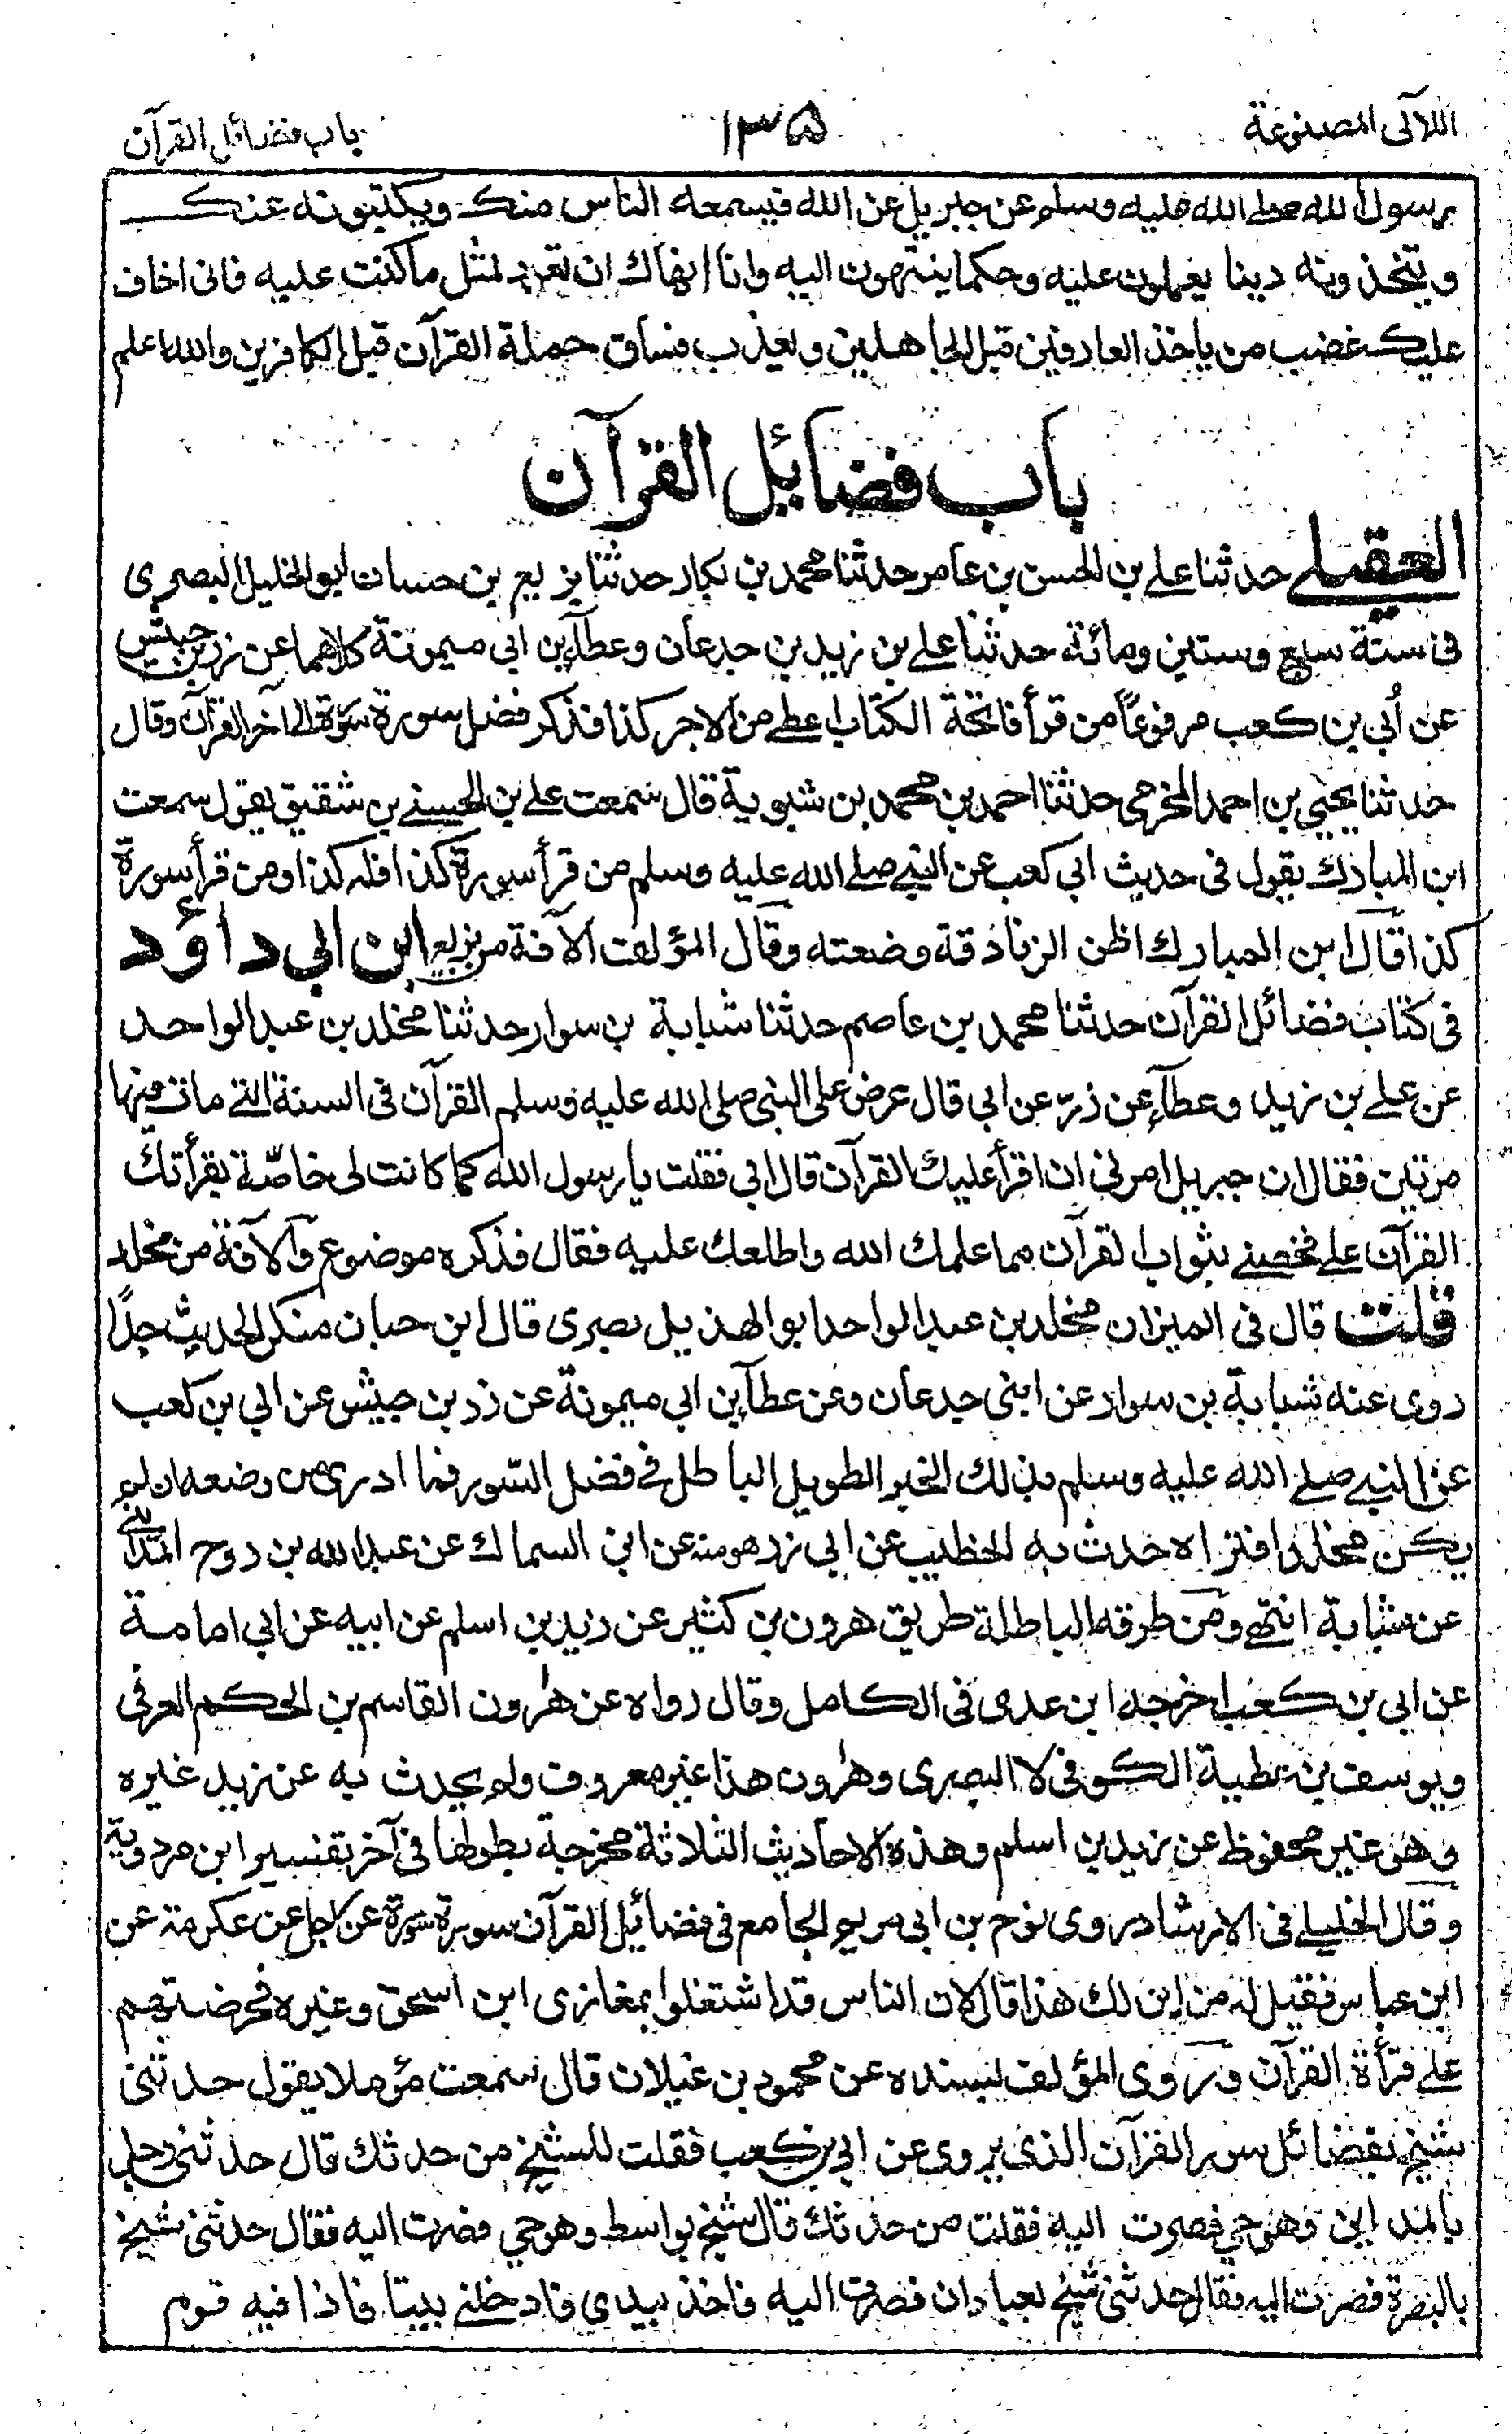 اللآلى المصنوعة
١٣٥
باب فضائل القرآن
رسول الله صلى الله عليه وسلم عن جبريل عن الله فيسمعه الناس منك ويكتبونه عنك
ويتخذونه دينا يعملون عليه وحكما ينتهون اليه وانا انهاك ان تعود لمثل ما كنت عليه فانى اخاف
عليك غضب من ياخذ العارفين قبل الجاهلين ويعذب فساق حملة القرآن قبل الكافرين والله اعلم
باب فضائل القرآن
العقيلے حدثنا علے بن الحسن بن عامر حدثنا محمد بن بكار حدثنا بزيع بن حسان ابو الخليل البصرى
فى سنة سبع وستين ومائة حدثنا علے بن زيد بن جدعان وعطآء بن ابى ميمونة كلاهما عن زر بن حبيش
عن أبي بن كعب مرفوعاً من قرأ فاتحة الكتاب اعطے من الاجر كذا فذكر فضل سورة سورة الى آخر القرآن وقال
حدثنا يحيى بن احمد المخرمى حدثنا احمد بن محمد بن شبوية قال سمعت علے بن الحسين بن شقيق يقول سمعت
ابن المبارك يقول فى حديث ابى كعب عن النبي صلے الله عليه وسلم من قرأ سورة كذا فله كذا ومن قرأ سورة
كذا قال ابن المبارك اظن الزنادقة وضعته وقال المؤلف الآفة من بزيع ابن ابى داؤد
فى كتاب فضائل القرآن حدثنا محمد بن عاصم حدثنا شبابة بن سوار حدثنا مخلد بن عبد الواحد
عن علے بن زيد وعطآء عن زرّ عن ابى قال عرض على النبى صلى الله عليه وسلم القرآن فى السنة التے مات فيها
مرتين فقال ان جبريل امرنى ان اقرأ عليك القرآن قال ابى فقلت يا رسول الله كما كانت لى خاصّة بقرأتك
القرآن علے فخصنے بثواب القرآن مما علمك الله واطلعك عليه فقال فذكره موضوع وآلآفة من مخلد
قلت قال فى الميزان مخلد بن عبد الواحد ابو الهذيل بصرى قال ابن حبان منكر الحديث جدًا
روى عنه شبابة بن سوار عن ابنى جدعان وعن عطآء بن ابى ميمونة عن زر بن حبيش عن ابى بن كعب
عن النبے صلے الله عليه وسلم بذلك الخبر الطويل الباطل فے فضل السّور فما ادرى من وضعه ان لم
يكن مخلد افتراه حدث به الخطيب عن ابى زرهومنه عن ابن السماك عن عبد الله بن روح المدائنے
عن شبابة انتهے ومن طرقه الباطلة طريق هرون بن كثير عن زيد بن اسلم عن ابيه عن ابى امامة
عن ابى بن كعب اخرجه ابن عدى فى الكامل وقال رواه عن هٰرون القاسم بن الحكم العرفى
ويوسف بن عطية الكوفى لا البصرى وهٰرون هذا غير معروف ولم يحدث به عن زيد غيره
وهو غير محفوظ عن زيد بن اسلم وهذه الاحاديث الثلاثة مخرجة بطولها فى آخر تفسير ابن مردوية
وقال الخليلے فى الارشاد روى نوح بن ابى مريم الجامع فى فضائل القرآن سورة سورة عن رجل عن عكرمة عن
ابن عباس فقيل له من اين لك هذا قال لان الناس قد اشتغلوا بمغازى ابن اسحق وغيره فحرضتهم
علے قرأة القرآن وروى المؤلف بسنده عن محمود بن غيلان قال سمعت مؤملا يقول حدثنى
شيخ بفضائل سور القرآن الذى يروى عن ابى بن كعب فقلت للشيخ من حدثك قال حدثنى رجل
بالمداين وهو حي فصرت اليه فقلت من حدثك قال شيخ بواسط وهو حي فصرت اليه فقال حدثنى شيخ
بالبصرة فصرت اليه فقال حدثنى شيخ بعبادان فصرت اليه فاخذ بيدي فادخلنے بيتا فاذا فيه قوم